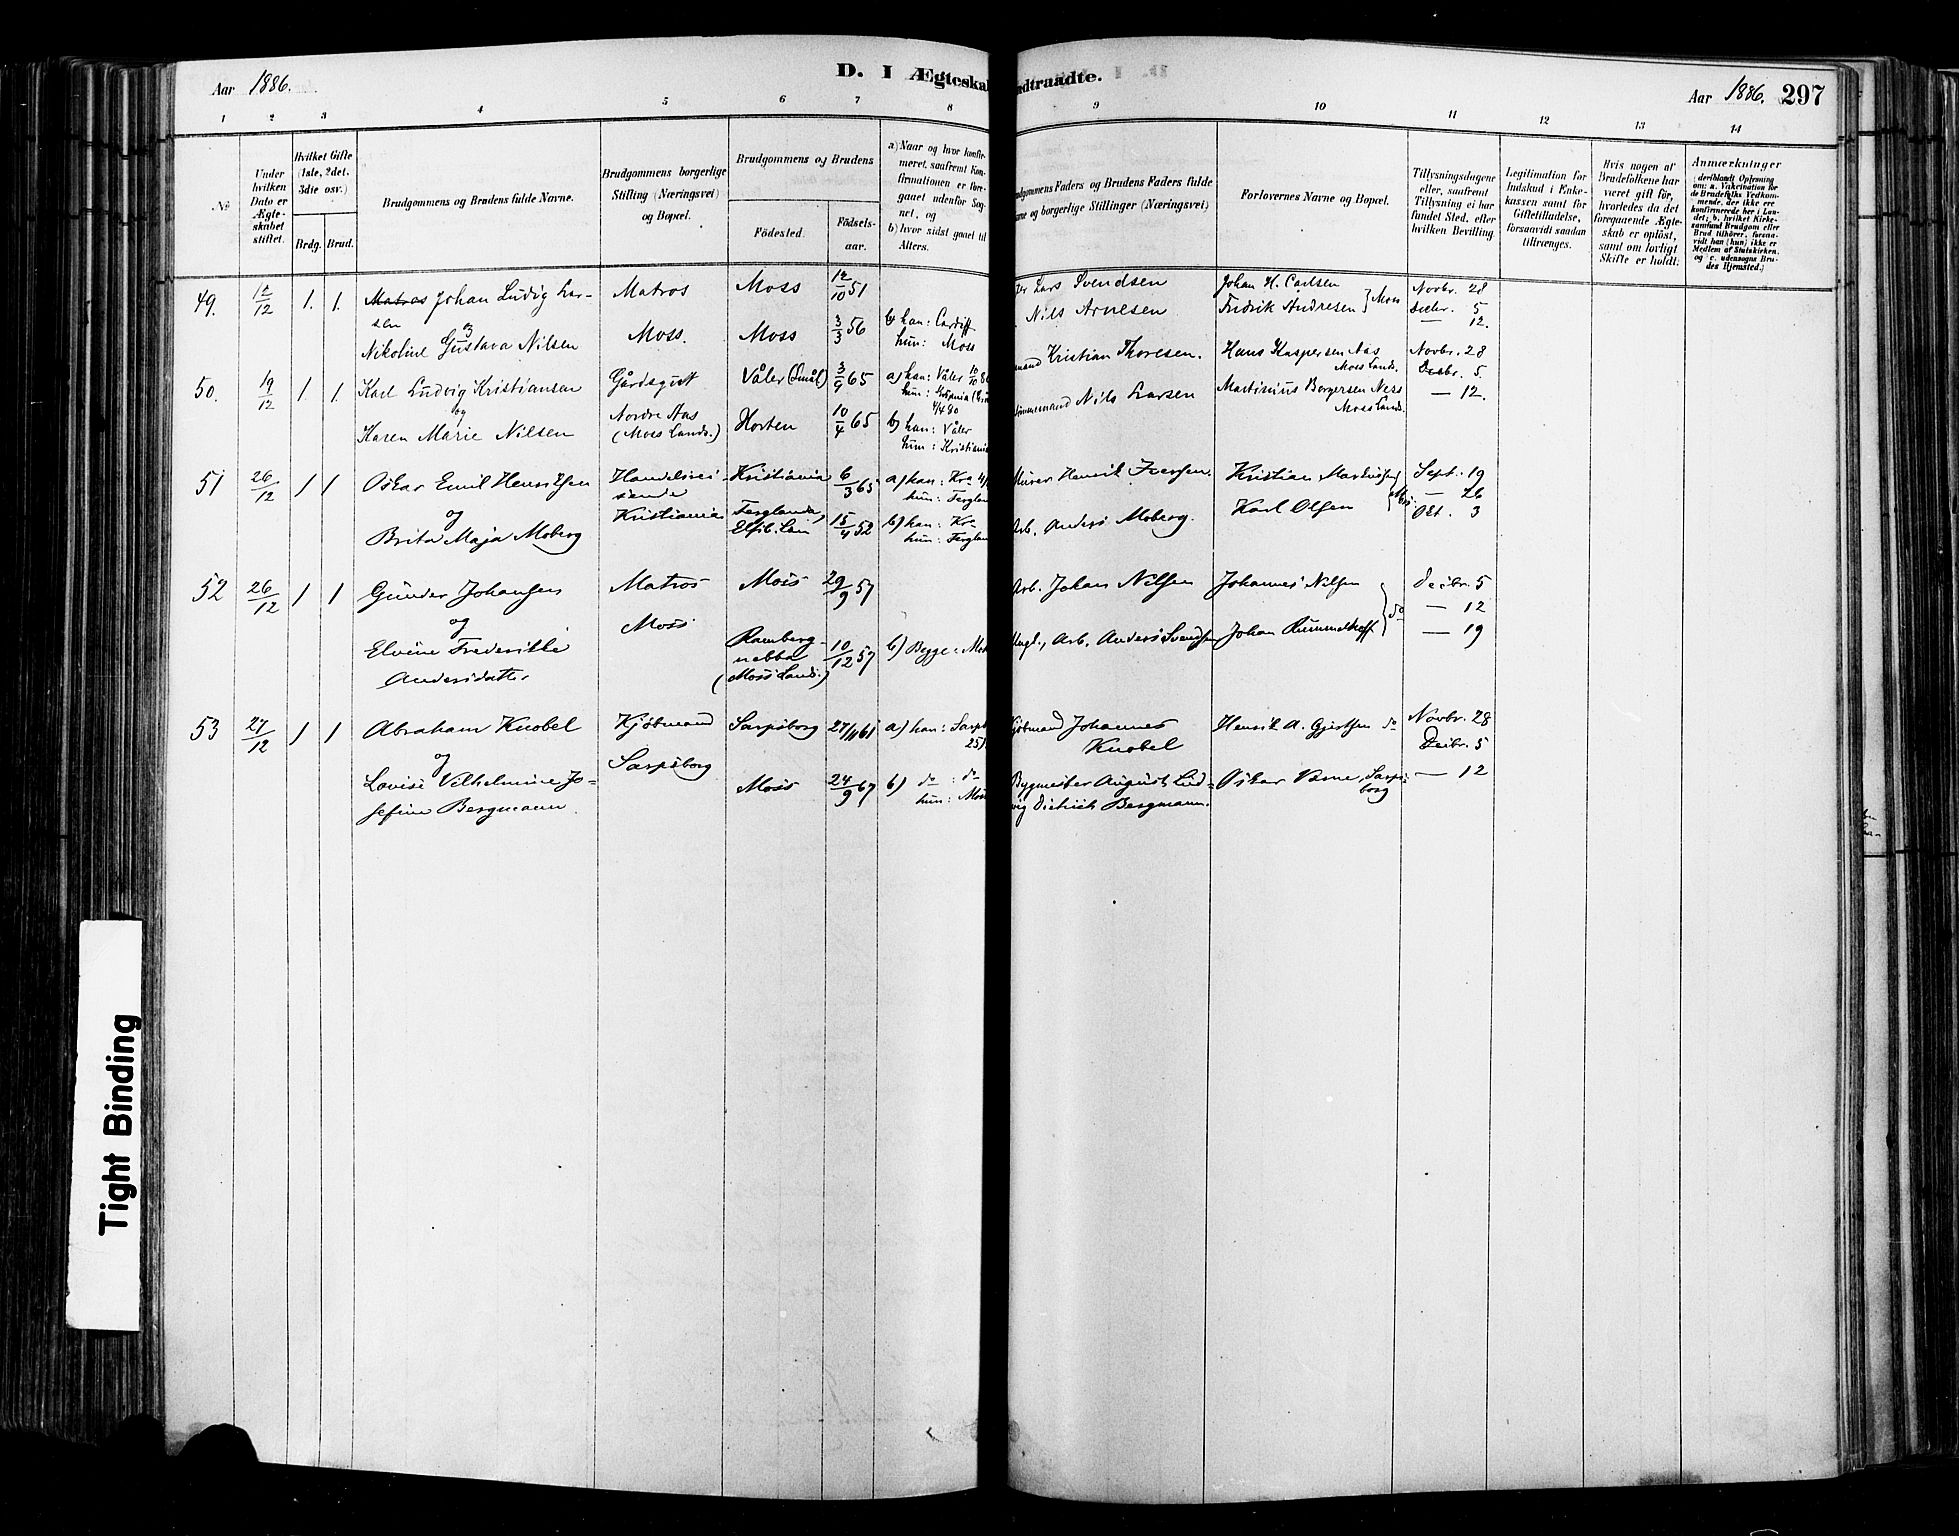 Aar 1886.
D. I Ægteskab Indtraadte.
Aar 1886. 297
1 2 3 4 5 6 7 8 9 10 11 12 13 14
№
Under hvilken Dato er Ægteskabet stiftet.
Hvilket Gifte (1ste, 2det, 3die osv.)
Brdg. Brud.
Brudgommens og Brudens fulde Navne.
Brudgommens borgerlige Stilling (Næringsvei) og Bopæl.
Brudgommens og Brudens
Fødested. Fødselsaar.
a) Naar og hvor konfirmeret, saafremt Konfirmationen er foregaaet udenfor Sognet, og
b) hvor sidst gaaet til Alters.
Brudgommens Faders og Brudens Faders fulde
Navne og borgerlige Stillinger (Næringsvei)
Forlovernes Navne og Bopæl.
Tillysningsdagene eller, saafremt Tillysning ei har fundet Sted, efter hvilken Bevilling.
Legitimation for Indskud i Enkekassen samt for Giftetilladelse, forsaavidt saadan tiltrænges.
Hvis nogen af Brudefolkene har været gift før, hvorledes da det foregaaende Ægteskab er opløst, samt om lovligt Skifte er holdt.
Anmærkninger
49. 12/12 1. 1. Matros Johan Ludvig Larsen
og
Nikoline Gustava Nilsen
Matros
Moss.
Moss 12/10 51
Moss 3/3 56
b) han: Cardiff
hun: Moss
Lars Svendsen
Nils Arnesen
Johan H. Carlsen
Fredrik Andresen } Moss
Novbr. 28
Decbr. 5
— 12.
50. 19/12 1 1 Karl Ludvig Kristiansen
og
Karen Marie Nilsen
Gårdsgutt
Nordre Aas
(Moss Lands.)
Våler (Smål) 3/9 65
Horten 10/4 65
a) han: Våler 10/10 80
hun:
4/4 80
b) han: Våler
hun: Kristiania
Kristian Thoresen.
Nils Larsen
Hans Kaspersen Aas
Moss Lands.
Martinius Borgersen Ness
Moss Lands.
Novbr. 28
Decbr. 5.
— 12.
51 26/12 1 1 Oskar Emil Henriksen
og
Brita Maja Moberg
Handelsreisende
Kristiania
Kristiania 6/3 65
Ferglanda,
15/4 52
a) han: Kra
hun: Fergland
b) han: Kra
hun: Fergland
Murer Henrik Iversen.
Arb. Anders Moberg.
Kristian Martinsen
Karl Olsen } Moss.
Sept. 19
— 26
Okt. 3
52 26/12 1 1 Gunder Johansen
og
Elvine Fredrikke
Andersdatter
Matros
Moss
Moss 29/9 57
Ramberg-
nebba
(Moss Lands.) 10/12 57
b) Begge: Moss
Arb. Johan Nilsen
Ungk., Arb. Anders Svendsen
Johannes Nilsen
Johan Rummelhoff } do
Decbr. 5
— 12
— 19
53 27/12 1 1 Abraham Knobel
og
Lovise Vilhelmine Jo-
sefine Bergmann.
Kjøbmand
Sarpsborg
Sarpsborg 27/11 61
Moss 24/9 67
a) han: Sarpsb
b) do: do
hun: Moss
Kjøbmand Johannes
Knobel
Bygmester August Lud-
vig Dietrich Bergmann.
Henrik A. Gjertsen do
Oskar Varne, Sarps-
borg
Novbr. 28
Decbr. 5
— 12
Tight Binding